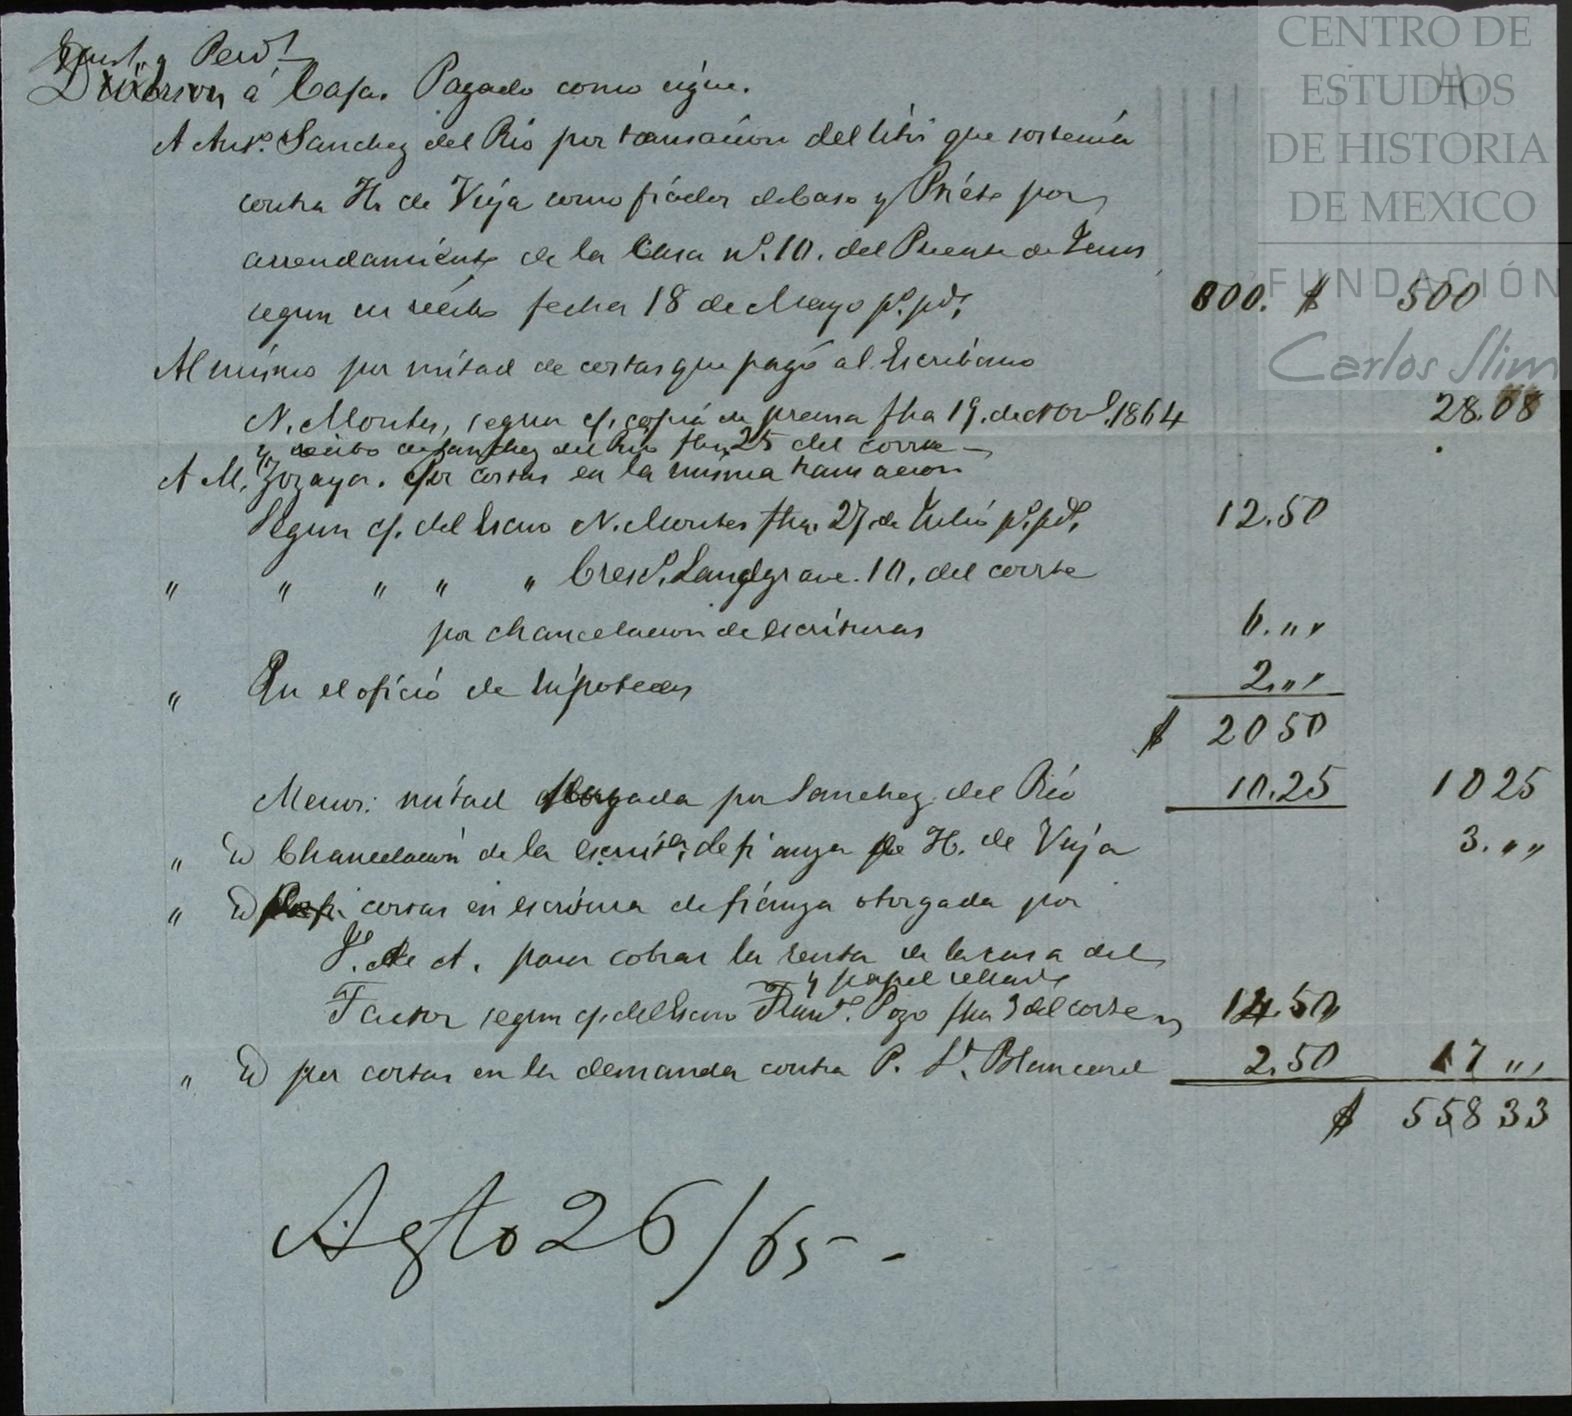 á Caja. Pagado como sigue.
A Anto. Sanchez del Rio por transacion del litis que sostenia
contra H. de Viya como fiador de Caso y Prieto por
arrendamiento de la Casa no. 10. del Puente de
segun su recibo fecha 18 de Mayo po. pdo. 800. $ 500
Al mismo por mitad de costas que pagó al Escribano
N. Montes, segun c/. copia de prensa fha 19. de Novo. 1864 28.08
y recibo de Sanchez del Rio fha 25 del corrte
A M. Zozaya. Por costas en la misma transacion
Segun c/. del Escno N. Montes fha. 27 de Julio po. pdo. 12.50
" " " " " Cresco. Landgrave. 10. del corrte
por chancelacion de escrituras 6. " "
" En el oficio de hipotecas 2. " "
$ 20 50
Menos: mitad pagada por Sanchez del Rio 10.25 10 25
" Id Chancelacion de la escrita. de fianza de H. de Viya 3. " "
" Id costas en escritura de fianza otorgada por
J. de A. para cobrar la renta de la casa del
y papel sellado
Factor segun c/. del Escno Pozo fha 3 del corrte 14.50
" Id por costas en la demanda contra P. St. Blancard 2.50 17 " "
$ 558 33
Agto 26/65 -
CENTRO DE
ESTUDIOS
DE HISTORIA
DE MEXICO
FUNDACIÓN
Carlos Slim